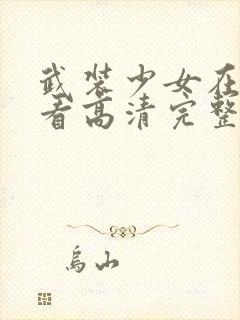 武装少女在
看高清完整
乌山